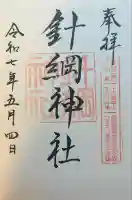 奉拝
針綱神社
令和七年五月四日